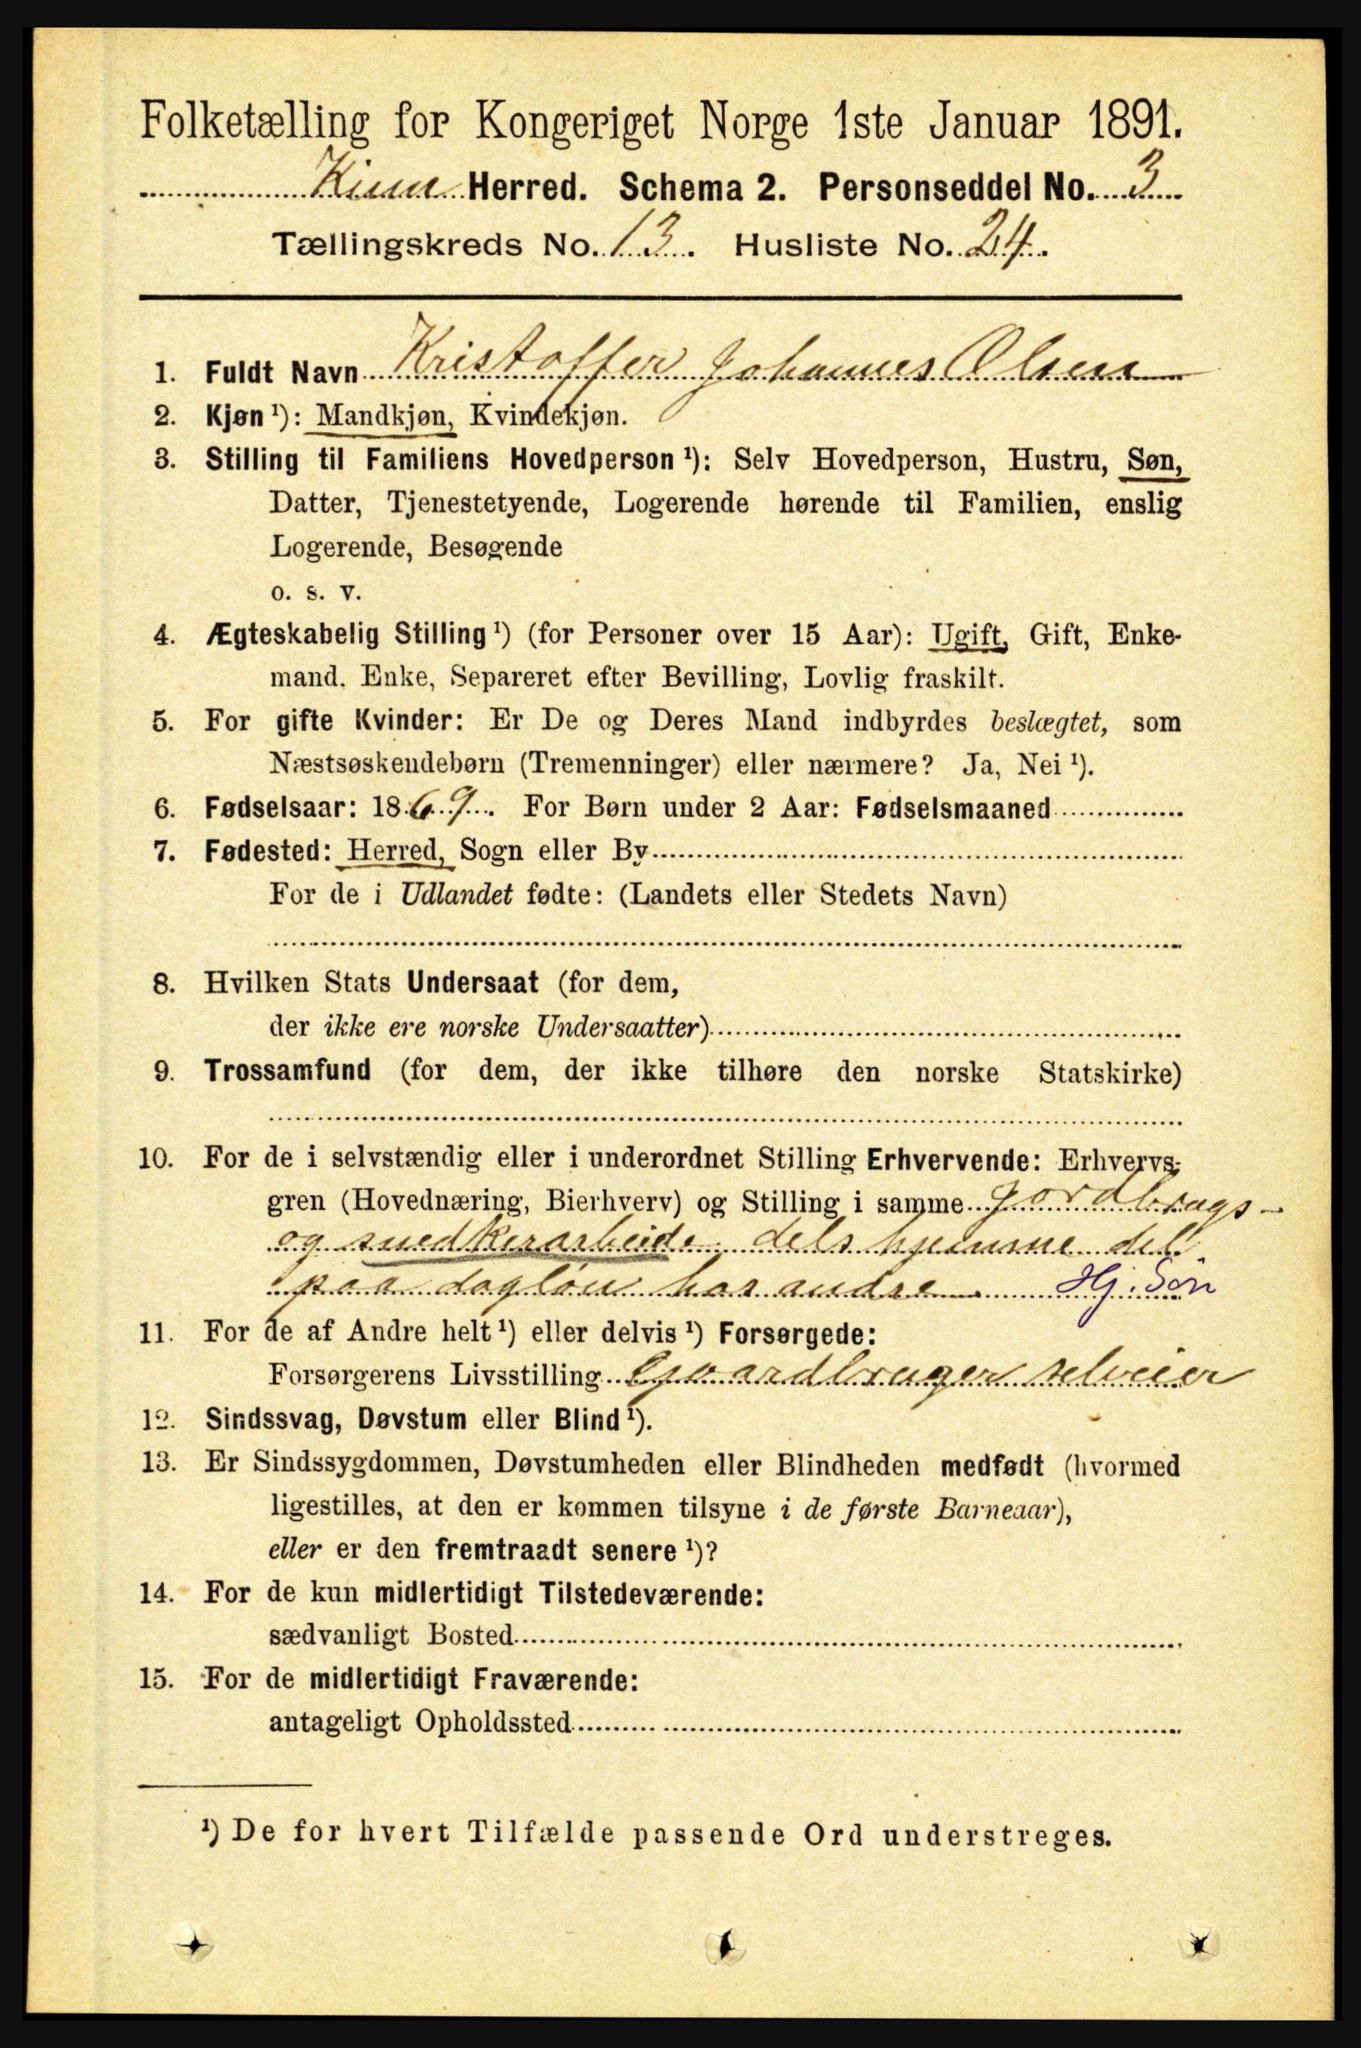 Folketælling for Kongeriget Norge 1ste Januar 1891.
Kinn Herred. Schema 2. Personseddel No. 3
Tællingskreds No. 13. Husliste No. 24.
1. Fuldt Navn Kristoffer Johannes Olsen
2. Kjøn ¹): Mandkjøn, Kvindekjøn.
3. Stilling til Familiens Hovedperson ¹): Selv Hovedperson, Hustru, Søn,
Datter, Tjenestetyende, Logerende hørende til Familien, enslig
Logerende, Besøgende
o. s. v.
4. Ægteskabelig Stilling ¹) (for Personer over 15 Aar): Ugift, Gift, Enke-
mand, Enke, Separeret efter Bevilling, Lovlig fraskilt.
5. For gifte Kvinder: Er De og Deres Mand indbyrdes beslægtet, som
Næstsøskendebørn (Tremenninger) eller nærmere? Ja, Nei ¹).
6. Fødselsaar: 1869. For Børn under 2 Aar: Fødselsmaaned
7. Fødested: Herred, Sogn eller By
For de i Udlandet fødte: (Landets eller Stedets Navn)
8. Hvilken Stats Undersaat (for dem,
der ikke ere norske Undersaatter)
9. Trossamfund (for dem, der ikke tilhøre den norske Statskirke)
10. For de i selvstændig eller i underordnet Stilling Erhvervende: Erhvervs-
gren (Hovednæring, Bierhverv) og Stilling i samme Jordbrugs-
og snedkerarbeide dels hjemme del
paa dagløn hos andre Hj. Søn
11. For de af Andre helt ¹) eller delvis ¹) Forsørgede:
Forsørgerens Livsstilling Gaardbruger selveier
12. Sindssvag, Døvstum eller Blind ¹).
13. Er Sindssygdommen, Døvstumheden eller Blindheden medfødt (hvormed
ligestilles, at den er kommen tilsyne i de første Barneaar),
eller er den fremtraadt senere ¹)?
14. For de kun midlertidigt Tilstedeværende:
sædvanligt Bosted
15. For de midlertidigt Fraværende:
antageligt Opholdssted
¹) De for hvert Tilfælde passende Ord understreges.